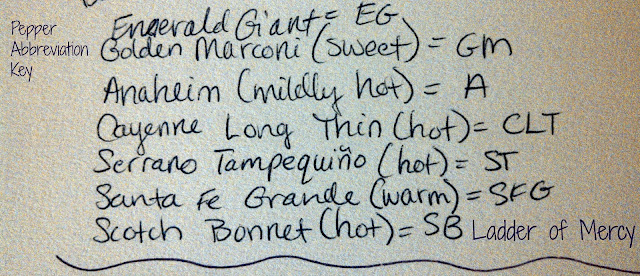 Pepper
Abbreviation
Key
Emerald Giant = EG
Golden Marconi (sweet) = GM
Anaheim (mildly hot) = A
Cayenne Long Thin (hot) = CLT
Serrano Tampequiño (hot) = ST
Santa Fe Grande (warm) = SFG
Scotch Bonnet (hot) = SB
Ladder of Mercy